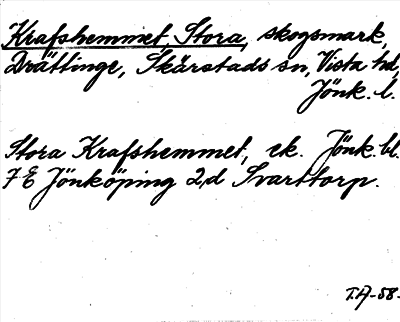 Krafshemmet, Stora, skogsmark,
Drättinge, Skärstads sn, Vista hd,
Jönk. l.
Stora Krafshemmet, ek. Jönk. bl.
7 E Jönköping 2,d Svarttorp.
T.A-58-